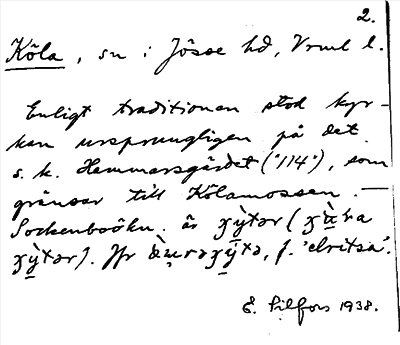 2.
Köla, sn i Jösse hd, Vrml l.
Enligt traditionen stod kyr-
kan ursprungligen på det
s. k. Hemmansgärdet ("114"), som
gränsar till Kölamossen. —
Sockenboökn. är
Jfr f. 'elritsa'.
E. Lilfors 1938.